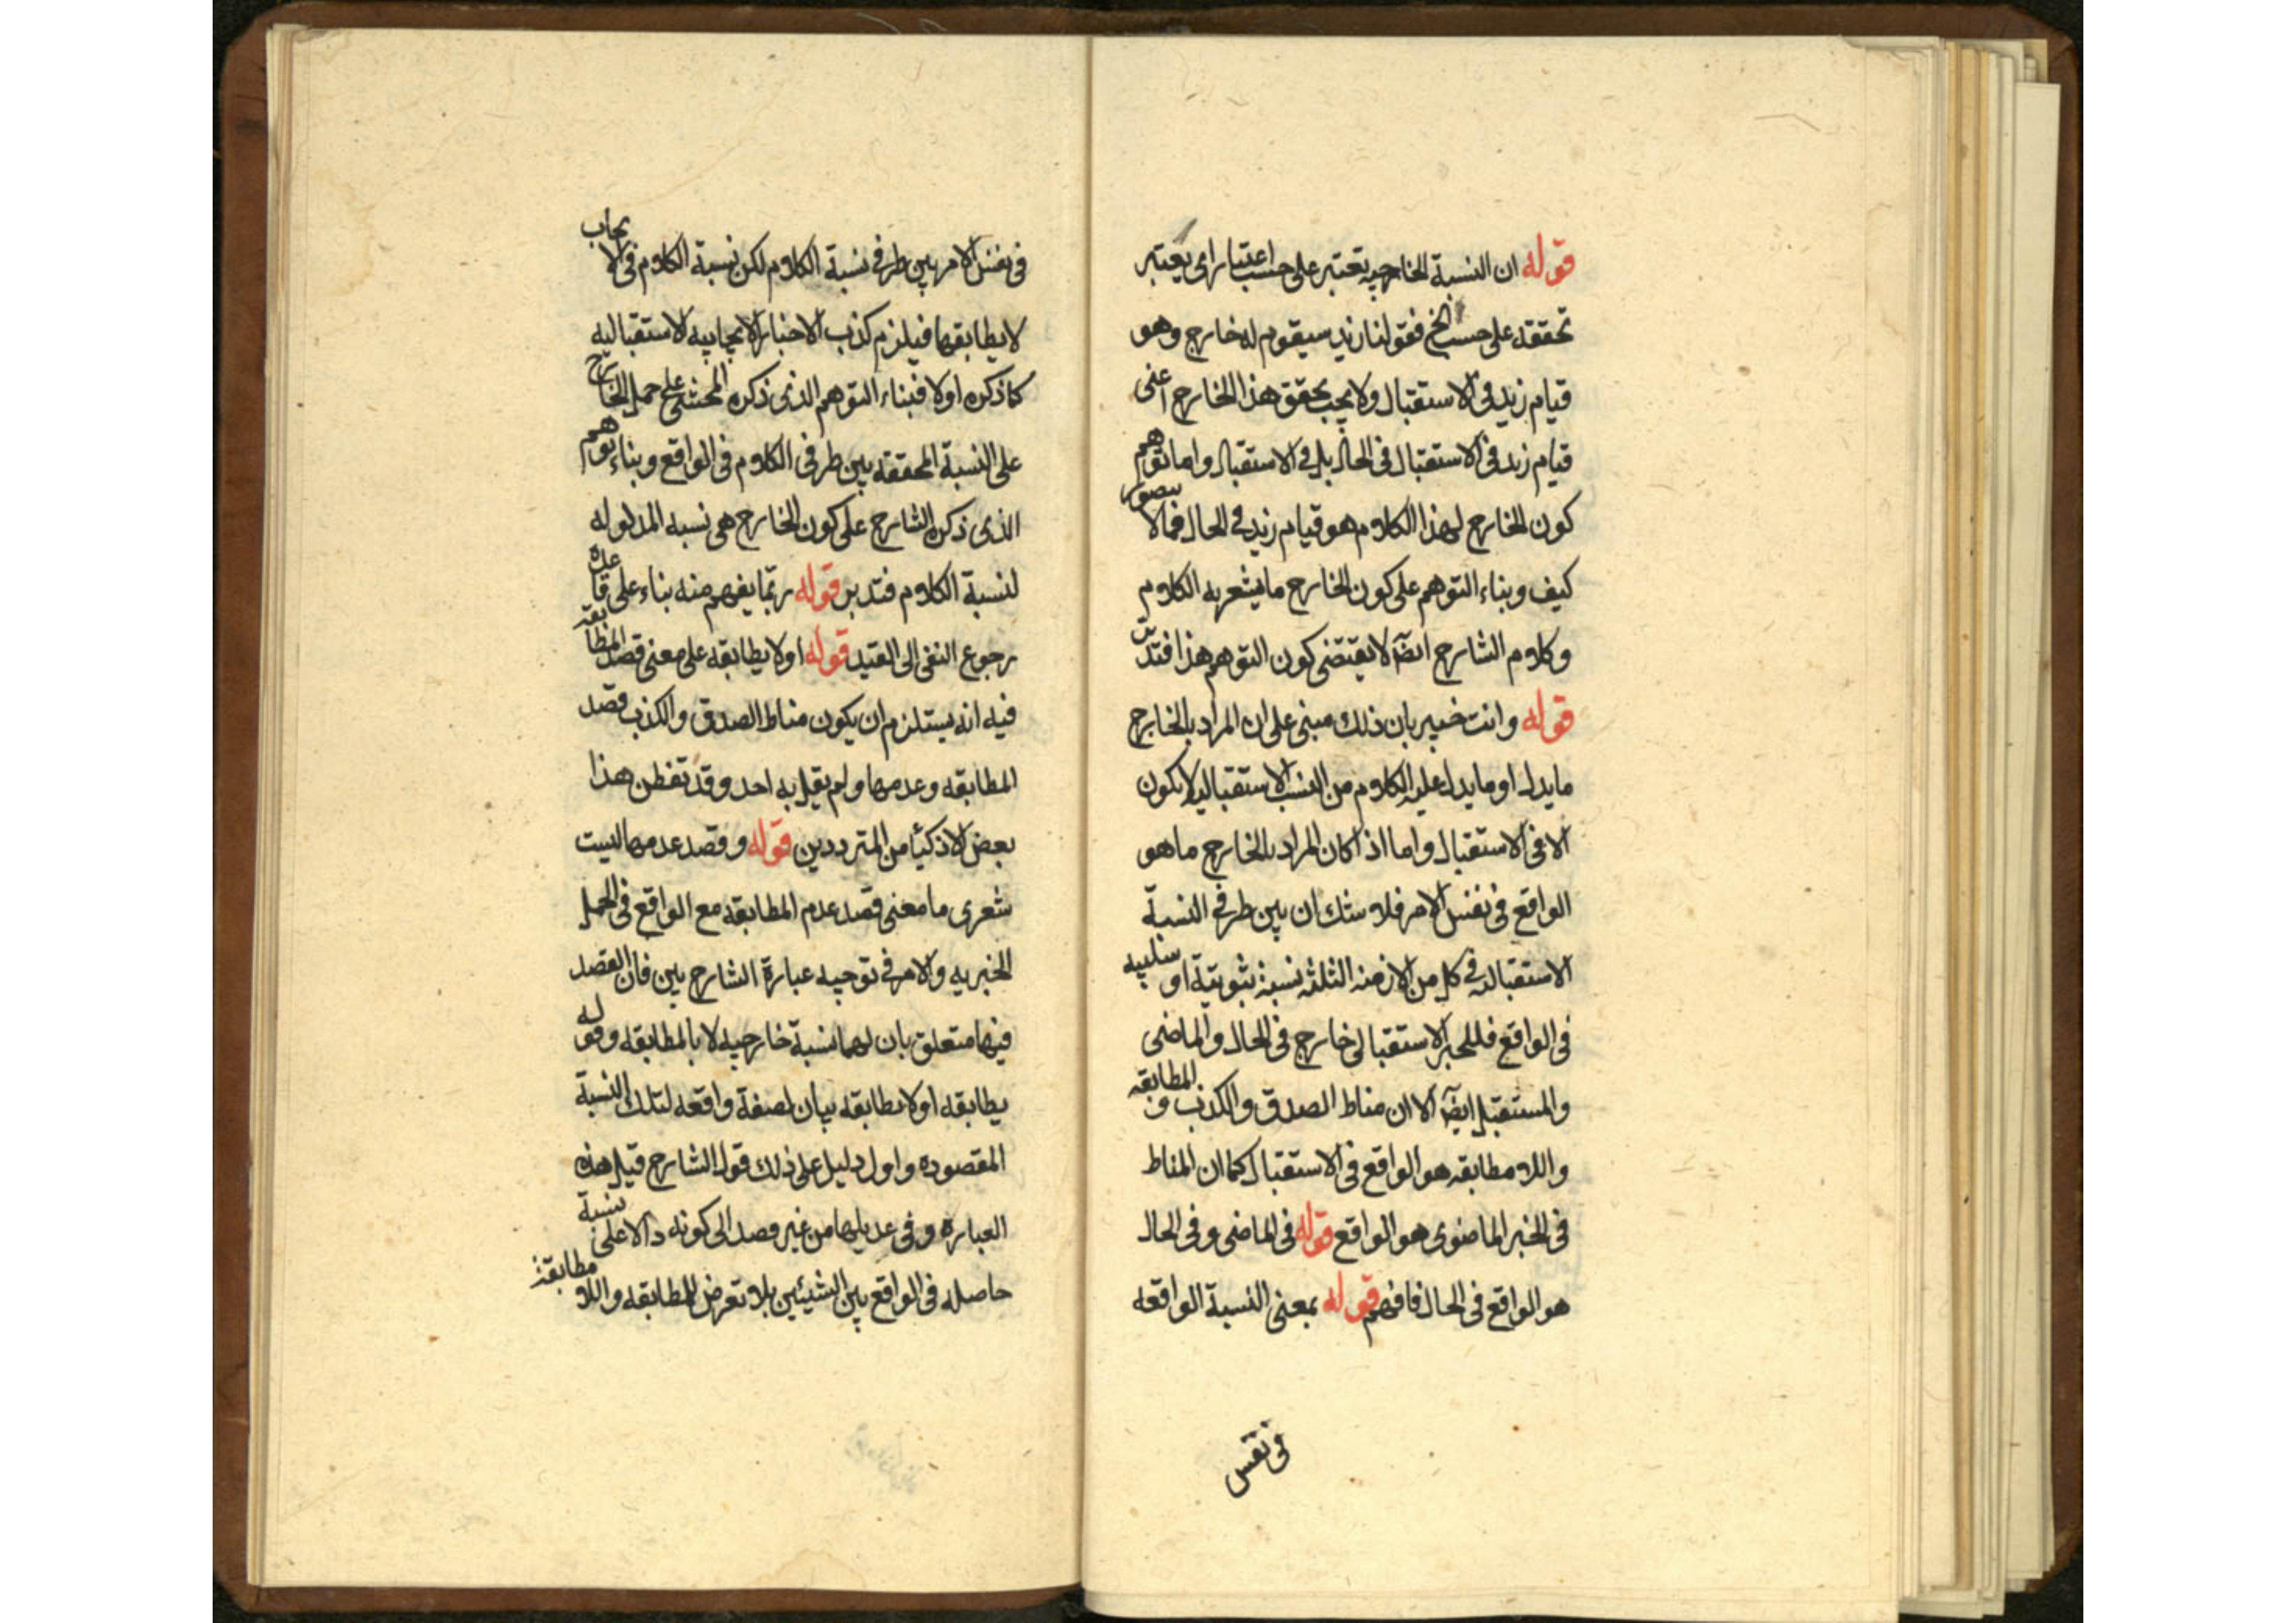 قوله ان النسبة الخارجيه تعتبر على حسب اعتبار اى يعتبر
تحققه على حسب الخ فقولنا زيد سيقوم له خارج وهو
قيام زيد فى الاستقبال ولا يجب تحقق هذا الخارج اعنى
قيام زيد فى الاستقبال فى الحال بل فى الاستقبال واما توهم
كون الخارج لهذا الكلام هو قيام زيد فى الحال فمما لا يتصور
كيف وبناء التوهم على كون الخارج ما يشعر به الكلام
وكلام الشارح ايضا لا يقتضى كون التوهم هذا فتدبر
قوله وانت خبير بان ذلك مبنى على ان المراد بالخارج
ما يدل او ما يدل عليه الكلام من النسب الاستقباليه لا يكون
الا فى الاستقبال واما اذا كان المراد بالخارج ما هو
الواقع فى نفس الامر فلا شك ان بين طرفى النسبة
الاستقباله فى كل من الازمنه الثلثه نسبة ثبوتية او سلبيه
فى الواقع فللخبر الاستقبالى خارج فى الحال والماضى
والمستقبل ايضا الا ان مناط الصدق والكذب و المطابقه
واللا مطابقه هو الواقع فى الاستقبال كما ان المناط
فى الخبر الماضوى هو الواقع قوله فى الماضى وفى الحال
هو الواقع فى الحال فافهم قوله بمعنى النسبة الواقعه
فى نفس
فى نفس الامر بين طرفى نسبة الكلام لكن نسبة الكلام فى الايجاب
لا يطابقها فيلزم كذب الاخبار الايجابيه الاستقباليه
كما ذكره اولا فبناء التوهم الذى ذكره المحشى على حمل الخارج
على النسبة المحققه بين طرفى الكلام فى الواقع وبناء توهم
الذى ذكره الشارح على كون الخارج هى نسبه المدلوله
لنسبة الكلام فتدبر قوله ربما يفهم منه بناء على قاعدة
رجوع النفى الى القيد قوله اولا يطابقه على معنى قصد المطابقه
فيه انه يستلزم ان يكون مناط الصدق والكذب قصد
المطابقه وعدمها ولم يقل به احد وقد تفطن هذا
بعض الاذكيا من المترددين قوله وقصد عدمها ليت
شعرى ما معنى قصد عدم المطابقه مع الواقع فى الجمل
الخبريه والامر فى توجيه عبارة الشارح بين فان القصد
فيها متعلق بان لهما نسبة خارجيه لا بالمطابقه وقوله
يطابقه او لا يطابقه بيان لصفة واقعه لتلك النسبة
المقصوده واول دليل على ذلك قول الشارح قبل هذه
العباره وفى عديلها من غير قصد الى كونه دالا على نسبة
حاصله فى الواقع بين الشيئين بلا تعرض للمطابقه واللا مطابقة